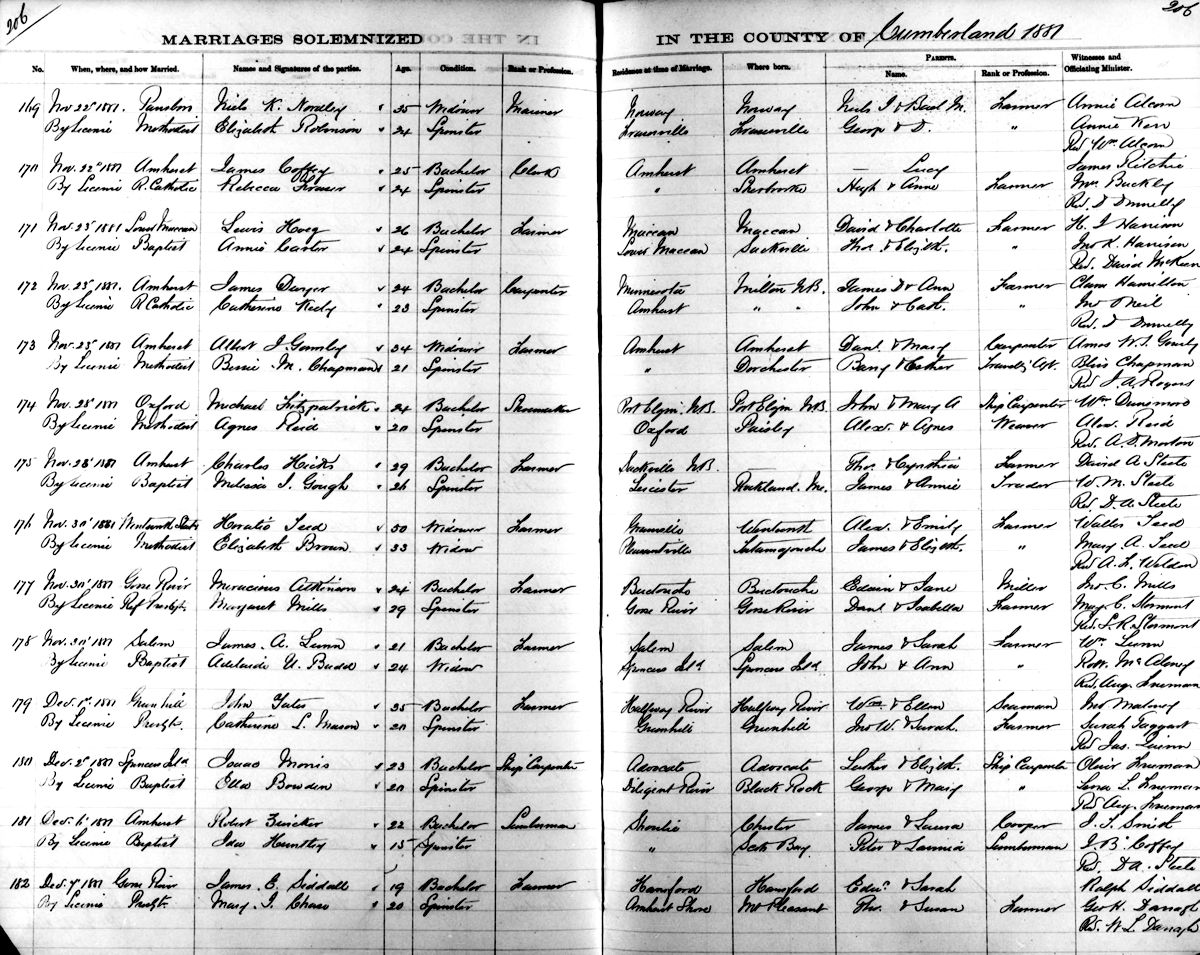 206
206
MARRIAGES SOLEMNIZED IN THE COUNTY OF Cumberland 1881
No. When, where, and how Married. Names and Signatures of the parties. Age. Condition. Rank or Profession. Residence at time of Marriage. Where born. PARENTS. Name. Rank or Profession. Witnesses and Officiating Minister.
169 Nov 22d 1881. Niels K. 35 Widower Mariner Norway Norway Niels Farmer Annie Alcorn
By Licenie Methodist Elizabeth Robinson 24 Spinster George & D. " Annie Kerr
Rev Wm Alcorn
170 Nov. 22d 1881 Amherst James Coffey 25 Bachelor Clerk Amherst Amherst — Lucy James Ritchie
By Licenie R. Catholic Rebecca Fraser 24 Spinster " Sherbrooke Hugh & Anne Farmer Mrs Buckley
Rev. D Donnelly
171 Nov. 23d 1881 Lower Maccan Lewis Hoeg 26 Bachelor Farmer Maccan Maccan David & Charlotte Farmer H. J Harrison
By Licenie Baptist Annie Carter 24 Spinster Lower Maccan Sackville Thos. & Elizth. " Jno K. Harrison
Rev. David McKeen
172 Nov. 23d 1881. Amherst James 24 Bachelor Carpenter Minnesota Milton N.B. James D & Ann Farmer Hamilton
By Licenie R Catholic Catherine 23 Spinster Amherst " " John & Cath. " Jno O'Neil
Rev. D Donnelly
173 Nov. 23d 1881 Amherst Albert J 34 Widower Farmer Amherst Amherst Danl. & Mary Carpenter Amos W.
By Licenie Methodist Bessie M. Chapman 21 Spinster " Dorchester & Esther Bliss Chapman
Rev J. A. Rogers
174 Nov. 28d 1881 Oxford Michael Fitzpatrick 24 Bachelor Shoemaker Port Elgin. N.B. Port Elgin N.B. John & Mary A Ship Carpenter Wm Dunsmore
By Licenie Methodist Agnes Reid 20 Spinster Oxford Paisley Alexr. & Agnes Weaver Alex. Reid
Rev. A. D. Morton
175 Nov. 28d 1881 Amherst Charles Hicks 29 Bachelor Farmer Sackville N.B. Thos. & Cynthia Farmer David A Steele
By Licenie Baptist Melissa J. Gough 26 Spinster Leicester Rockland. Me. James & Annie Trader W. M. Steele
Rev. D. A Steele
176 Nov. 30d 1881 Horatio Teed 50 Widower Farmer Wentworth Alexr. & Emily Farmer Walter Teed
By Licenie Methodist Elizabeth Brown 33 Widow Pleasantville Tatamagouche James & Elizth. " Mary A. Teed
Rev A. L. Weldon
177 Nov. 30d 1881 Gose River Atkinson 24 Bachelor Farmer Buctouche Buctouche Edwin & Jane Miller Jno C. Mills
By Licenie Ref Presbytn Margaret Mills 29 Spinster Gose River Gose River Danl. & Isabella Farmer May C. Stormont
Rev. S. R. Stormont
178 Nov. 30d 1881 Salem James A. Lunn 21 Bachelor Farmer Salem Salem James & Sarah Farmer Wm Lunn
By Licenie Baptist Adelaide U. Budd 24 Widow Spencers Isld Spencers Isld John & Ann " Robt. McAleney
Rev. Aug. Freeman
179 Dec. 1st 1881 Greenhill John Yates 25 Bachelor Farmer Halfway River Halfway River Wm & Ellen Seaman Jno Maloney
By Licenie Presbyt. Catherine L. Mason 20 Spinster Greenhill Greenhill Jno W. & Sarah. Farmer Sarah Taggart
Rev Jas. Quinn
180 Dec. 2d 1881 Spencers Isld Isaac Morris 23 Bachelor Ship Carpenter Advocate Advocate Luther & Elizth. Ship Carpenter Oliver Freeman
By Licenie Baptist Ella Bowden 20 Spinster Diligent River Black Rock George & Mary " L. Freeman
Rev Aug. Freeman
181 Dec. 6d 1881 Amherst Robert Zwicker 22 Bachelor Lumberman Shoulie Chester James & Louisa Cooper J. T. Smith
By Licenie Baptist Ida Huntley 15 Spinster " Scots Bay Peter & Lavinia Lumberman J. B. Coffey
Rev. D. A. Steele
182 Dec. 7d 1881 Gose River James. E. Siddall 19 Bachelor Farmer Hansford Hansford Edwd. & Sarah Ralph Siddall
By Licenie Presbyt. Mary J. Chase 20 Spinster Amherst Shore Mt Pleasant Thos. & Susan Farmer Geo H. Danagh
Rev. W. L. Danagh